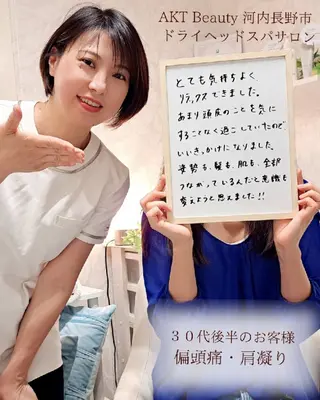 AKT Beauty 河内長野市
ドライヘッドスパサロン
とても気持ちよく、
リラックスできました。
あまり頭皮のことを気に
することなく過ごしていたので
いいきっかけになりました。
姿勢も、髪も、肌も、全部
つながっているんだと意識も
変えようと思えました!!
30代後半のお客様
偏頭痛・肩凝り